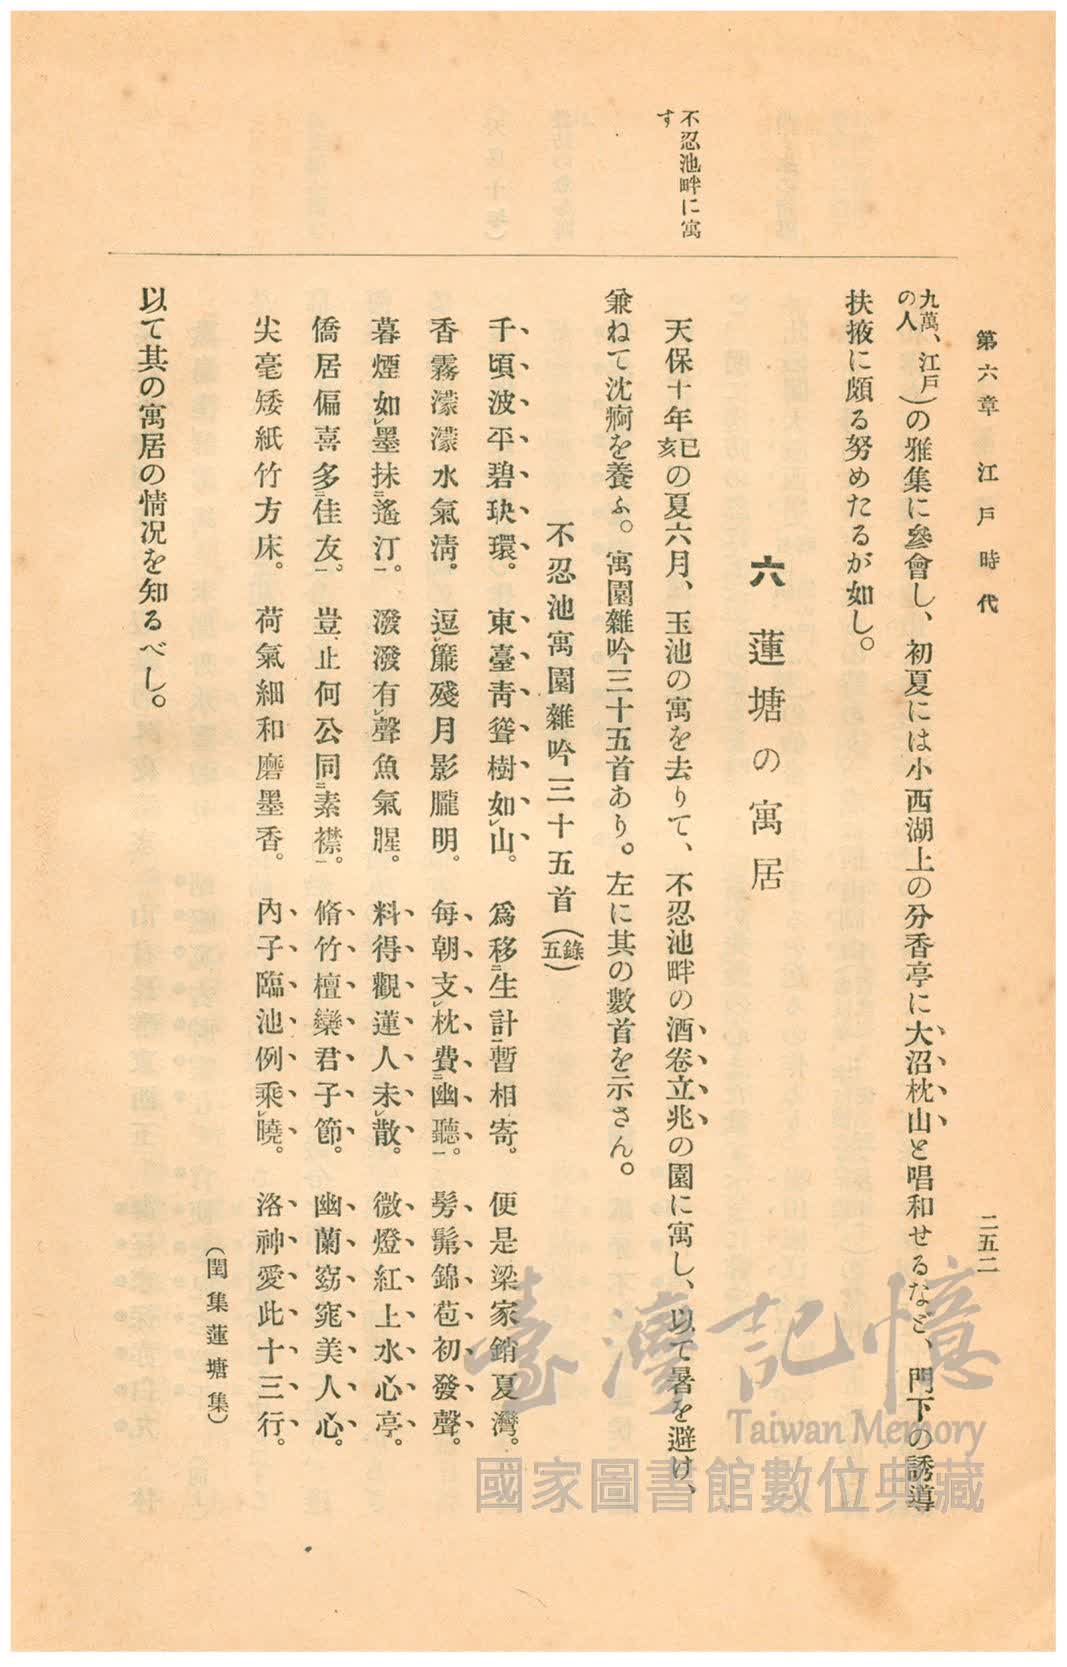 第六章 江戶時代
二五二
九萬、江戶の人)の雅集に參會し、初夏には小西湖上の分香亭に大沼枕山と唱和せるなど、門下の誘導
扶掖に頗る努めたるが如し。
六 蓮塘の寓居
不忍池畔に寓す
天保十年己亥の夏六月、玉池の寓を去りて、不忍池畔の酒卷立兆の園に寓し、以て暑を避け、
兼ねて沈痾を養ふ。寓園雜吟三十五首あり。左に其の數首を示さん。
不忍池寓園雜吟三十五首(錄五)
千頃波平碧玦環。 東臺靑聳樹如レ山。 爲移二生計一暫相寄。 便是梁家銷夏灣。
香霧濛濛水氣淸。 逗レ簾殘月影朧明。 每朝支レ枕費二幽聽一。 髣髴錦苞初發聲。
暮煙如レ墨抹二遙汀一。 潑潑有レ聲魚氣腥。 料得觀蓮人未レ散。 微燈紅上水心亭。
僑居偏喜多二佳友一。 豈止何公同二素襟一。 脩竹檀欒君子節。 幽蘭窈窕美人心。
尖毫矮紙竹方床。 荷氣細和磨墨香。 內子臨池例乘レ曉。 洛神愛此十三行。
(閏集蓮塘集)
以て其の寓居の情況を知るべし。
臺灣記憶
Taiwan Memory
國家圖書館數位典藏